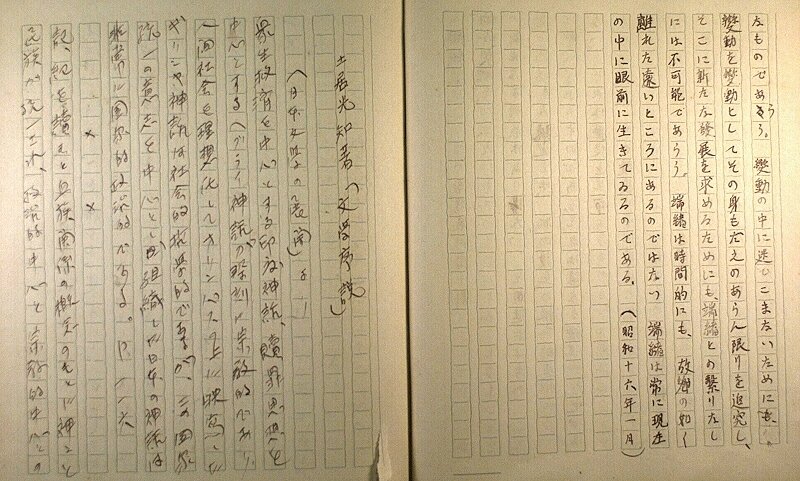 なものであらう。 變動の中に迷ひこまないために
變動を變動としてその身もだえのあらん限りを追究し、
そこに新たな發展を求めるためにも、端緒との繋りなし
には不可能であらう。端緒は時間的にも、故郷の如く
離れた遠いところにあるのではない 端緒は常に現在
の中に眼前に生きてゐるのである。 (昭和十六年一月)
土居光知著(文學序説)
(日本文學の展開)より
衆生救済を中心とする印度神話、贖罪思想を
中心とするヘブライ神話が深刻に宗教的であり、
社会を理想化してオリンパスの上に映
ギリシヤ神話は社会的哲學的であるが、この國家
統一の意志を中心として組織した日本の神話は
非常に國家的政治的である。
× ×
記、紀を讀むと血族関係の概念のもとに神々と
民族が統一され、政治的中心と宗教的中心との